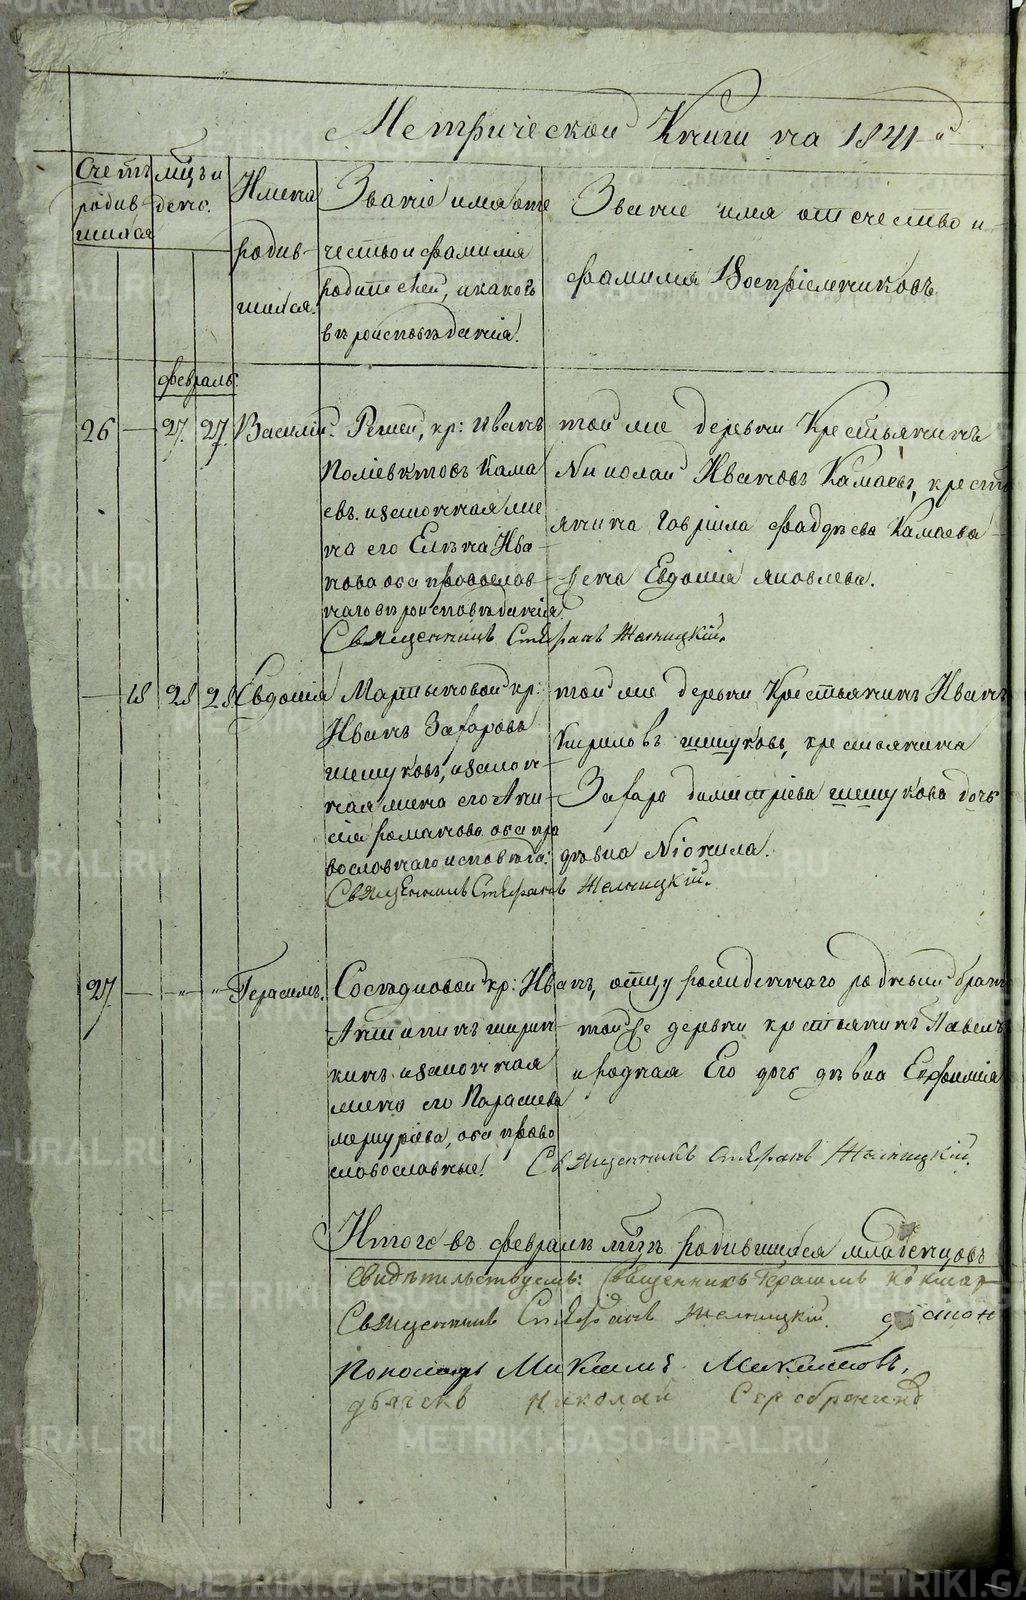 Метрической Книги на 1841 й
Счетъ родившихся
мцъ и день.
Имена родившихся.
Званіе имя отечество и фамилія
родителей, и какого
вѣроисповѣданія.
Званіе имя отечество и
фамилія Воспріемниковъ
февраль.
26 — 27. 27 Василій.
Режей, кр: Иванъ
Поліевктовъ Кама
евъ. и законная же
на его Елена Ива
нова оба православ
наго вѣроисповѣданія.
той же деревни Крестьянинъ
Николай Ивановъ Камаевъ, крест
янина Гавріила фаддѣева Камаева
жена Евдокія яковлева.
Священникъ Стефанъ Желницкій.
— 18 28 28 Евдокія
Мартыновой кр:
Иванъ Захаровъ
шешуковъ, и закон
ная жена его Ани
сія романова. оба пра
вославнаго исповѣда:
той же деревни Крестьянинъ Иванъ
Кириловъ шешуковъ, крестьянина
Захара димитріева шешукова дочь
дѣвка Nіонила.
Священникъ Стефанъ Желницкій.
27 — „ „ Герасимъ.
Сосѣдковой кр: Иванъ
Антипинъ ширин
кинъ и законная
жена его Параскева
меркуріева, оба право
славославные.
отцу рожденнаго родный братъ
той же деревни крестьянинъ Павелъ
и родная Его дочь дѣвка Евфимія
Священникъ Стефанъ Желницкій.
Итого въ февралѣ мцѣ родившихся младенцовъ
Свидѣтельствуемъ: Священникъ Герасимъ
Священникъ Стефанъ Желницкій.
Пономарь Максимъ
дьячекъ Николай Серебрениковъ